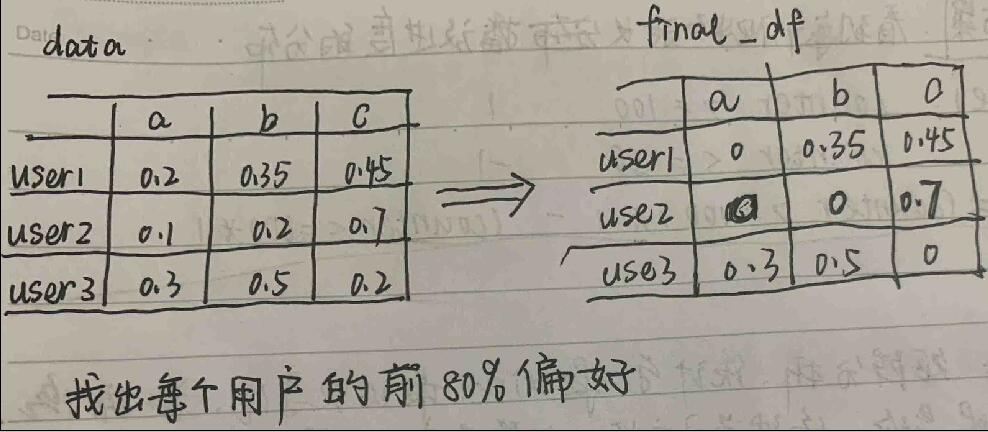 Date
data
final_df
a b c
user1 0.2 0.35 0.45
user2 0.1 0.2 0.7
user3 0.3 0.5 0.2
a b c
user1 0 0.35 0.45
use2 0 0 0.7
use3 0.3 0.5 0
找出每个用户的前80%偏好